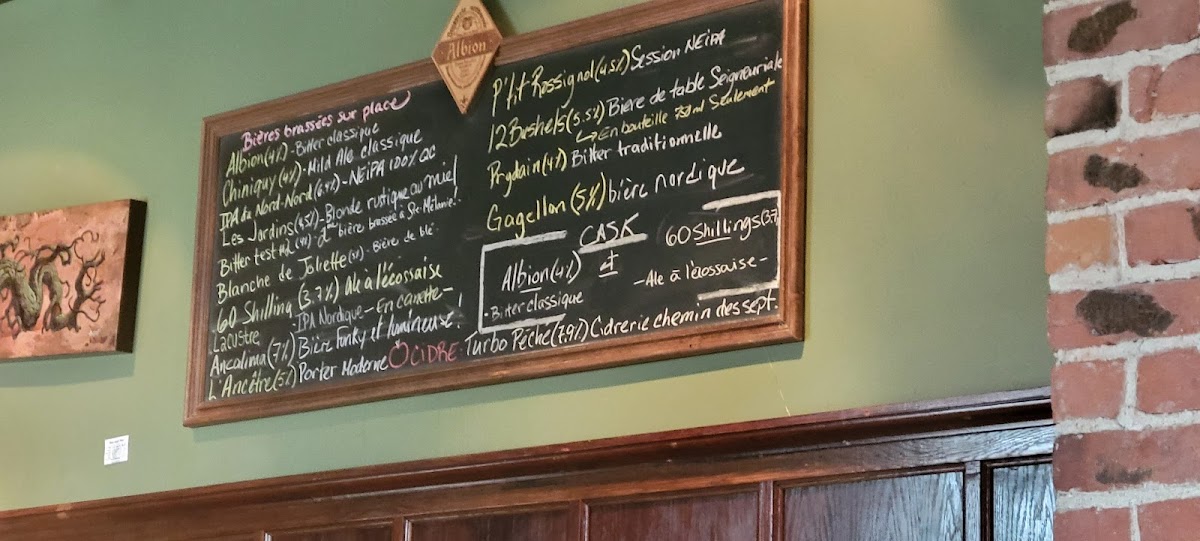 Albion
Bières brassées sur place
Albion (4%) - Bitter classique
Chiniquy (4%) - Mild Ale classique
IPA du Nord-Nord (6.5%) - NEiPA 100% QC
Les Jardins (4.5%) - Blonde rustique au miel
Bitter test #2 (4%) - 2e bière brassée à Ste-Mélanie!
Blanche de Joliette - Bière de blé
60 Shilling (3.7%) Ale à l'écossaise
Lacustre - IPA Nordique - En canette -
Ancalima (7%) Bière Funky et lumineuse!
L'Ancêtre (5%) Porter Moderne
P'tit Rossignol (4.5%) Session NEiPA
12 Bushels (5.5%) Bière de table Seigneuriale
↳ En bouteille 750 ml Seulement
Prydain (4%) Bitter traditionnelle
Gagellon (5%) bière nordique
CASK
Albion (4%) et 60 Shillings (3.7
- Bitter classique - Ale à l'écossaise -
CIDRE: Turbo Pêché (7.9%) Cidrerie chemin des sept.